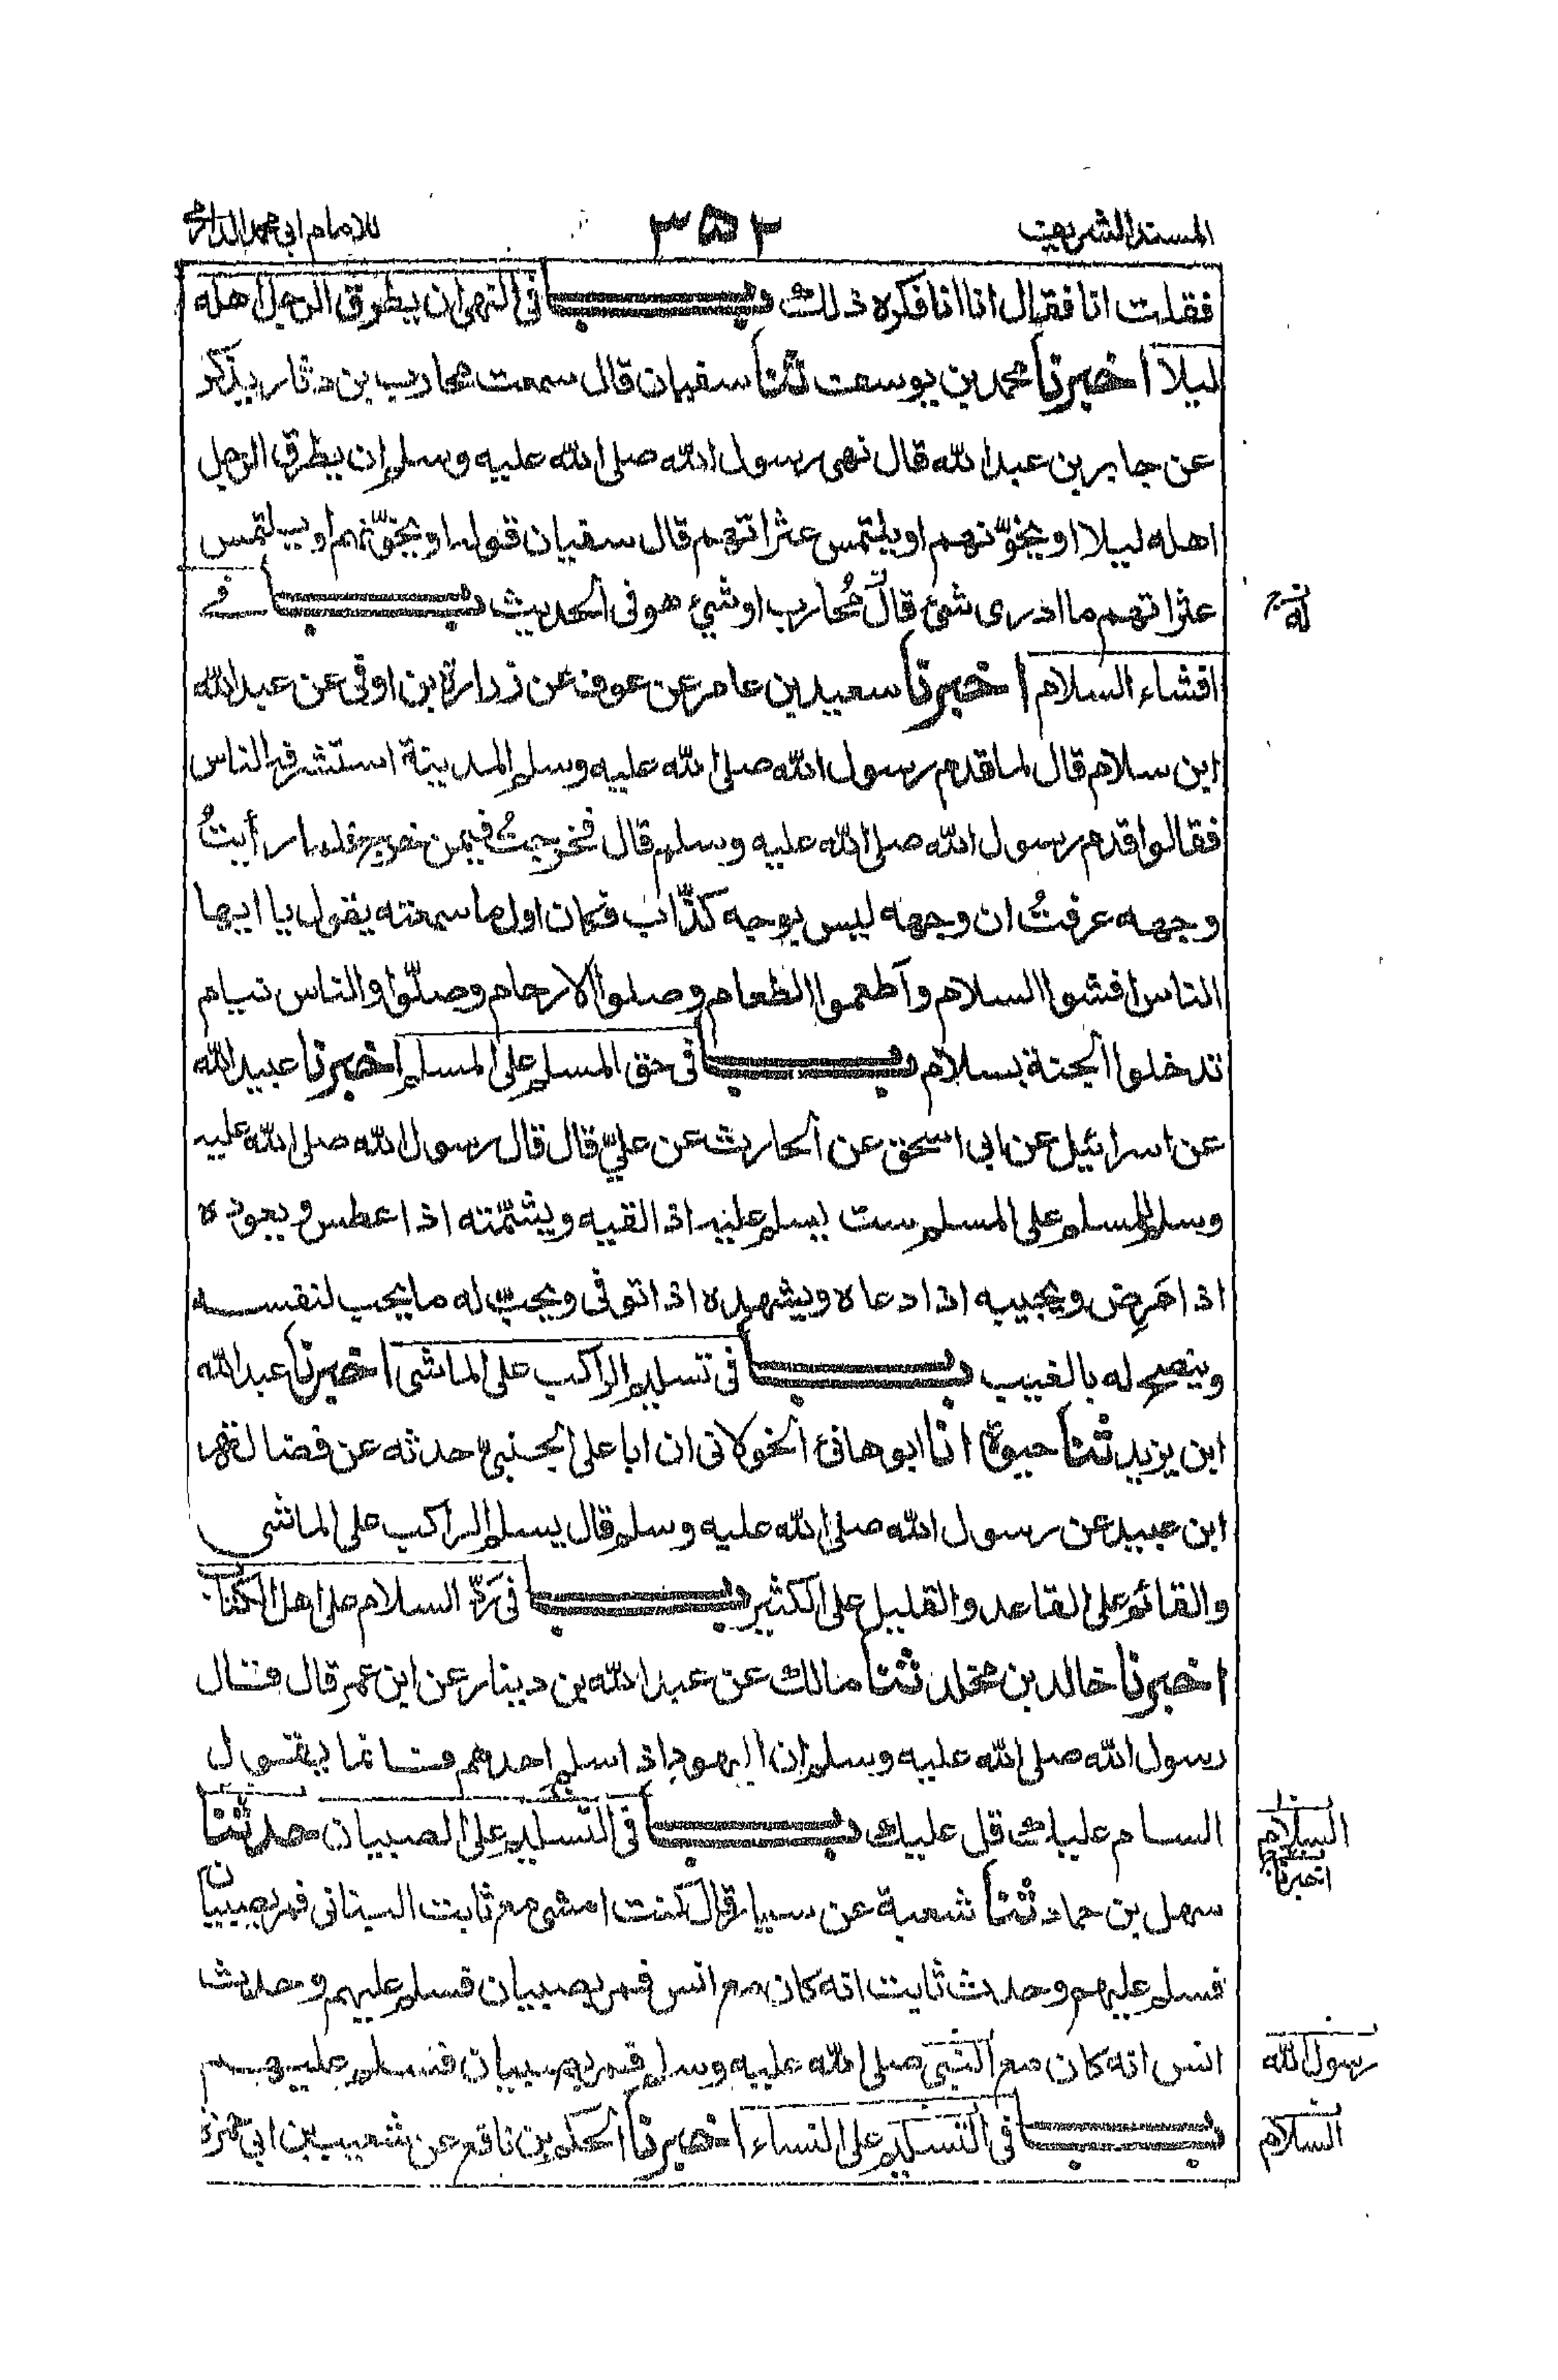 المسند الشريف ٣٥٢ للامام ابی محمد الدارمی
فقلت انا فقال انا انا فكره ذلك باب فی النهی ان يطرق الرجل اهله
ليلا اخبرنا محمد بن يوسف ثنا سفيان قال سمعت محارب بن دثار يذكر
عن جابر بن عبد الله قال نهى رسول الله صلى الله عليه وسلم ان يطرق الرجل
اهله ليلا او يخوّنهم او يلتمس عثراتهم قال سفيان قوله او يخوّنهم او يلتمس
عثراتهم ما ادری شیٔ قال مُحارب او شیٔ هو فی الحديث باب فی
له
افشاء السلام اخبرنا سعيد بن عامر عن عوف عن زرارة بن اوفى عن عبد الله
ابن سلام قال لما قدم رسول الله صلى الله عليه وسلم المدينة استشرفه الناس
فقالوا قدم رسول الله صلى الله عليه وسلم قال فخرجتُ فيمن خرج فلما رأيتُ
وجهه عرفتُ ان وجهه ليس بوجه كذّاب فكان اول ما سمعته يقول يا ايها
الناس افشوا السلام وأطعموا الطعام وصلوا الارحام وصلّوا والناس نيام
تدخلوا الجنة بسلام باب فی حق المسلم على المسلم اخبرنا عبيد الله
عن اسرائيل عن ابی اسحق عن الحارث عن علیّ قال قال رسول الله صلى الله عليه
وسلم للمسلم على المسلم ست يسلم عليه اذا لقيه ويشمّته اذا عطس ويعوده
اذا مَرِض ويجيبه اذا دعاه ويشهده اذا توفی ويحبّ له ما يحب لنفسه
وينصح له بالغيب باب فی تسليم الراكب على الماشی اخبرنا عبد الله
ابن يزيد ثنا حيوة انا ابو هانئ الخولانی ان ابا علی الجنبیّ حدثه عن فضالة
ابن عبيد عن رسول الله صلى الله عليه وسلم قال يسلم الراكب على الماشی
والقائم على القاعد والقليل على الكثير باب فی رَدّ السلام على اهل الكتاب
اخبرنا خالد بن مخلد ثنا مالك عن عبد الله بن دينار عن ابن عمر قال قال
رسول الله صلى الله عليه وسلم ان اليهود اذا سلم احدهم فانما يقول
السام عليك قل عليك باب فی التسليم على الصبيان حدثنا
السلام
اخبرنا
سهل بن حماد ثنا شعبة عن سيار قال كنت امشی مع ثابت البنانی فمر بصبيان
فسلم عليهم وحدث ثابت انه كان مع انس فمر بصبيان فسلم عليهم وحدث
انس انه كان مع النبی صلى الله عليه وسلم فمر بصبيان فسلم عليهم
رسول الله
باب فی التسليم على النساء اخبرنا الحكم بن نافع عن شعيب بن ابی حمزة
السلام